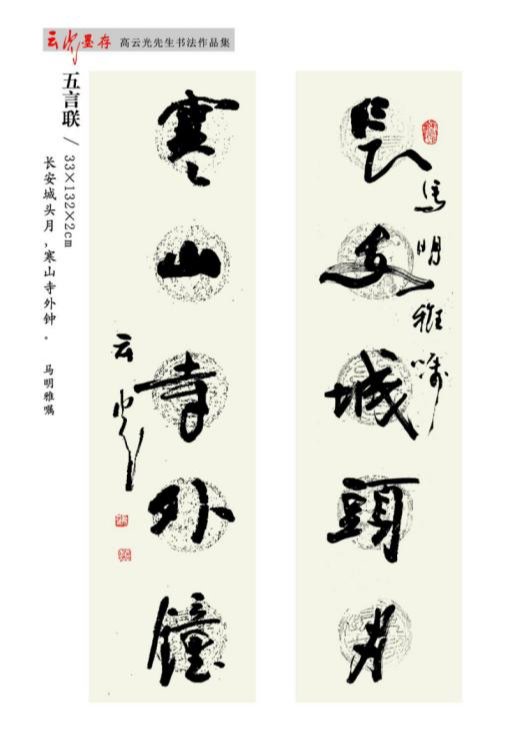 云光墨存 高云光先生书法作品集
五言联 / 33×132×2cm
长安城头月,寒山寺外钟。 马明雅嘱
長安城頭月
馬明雅嘱
寒山寺外鐘
云光